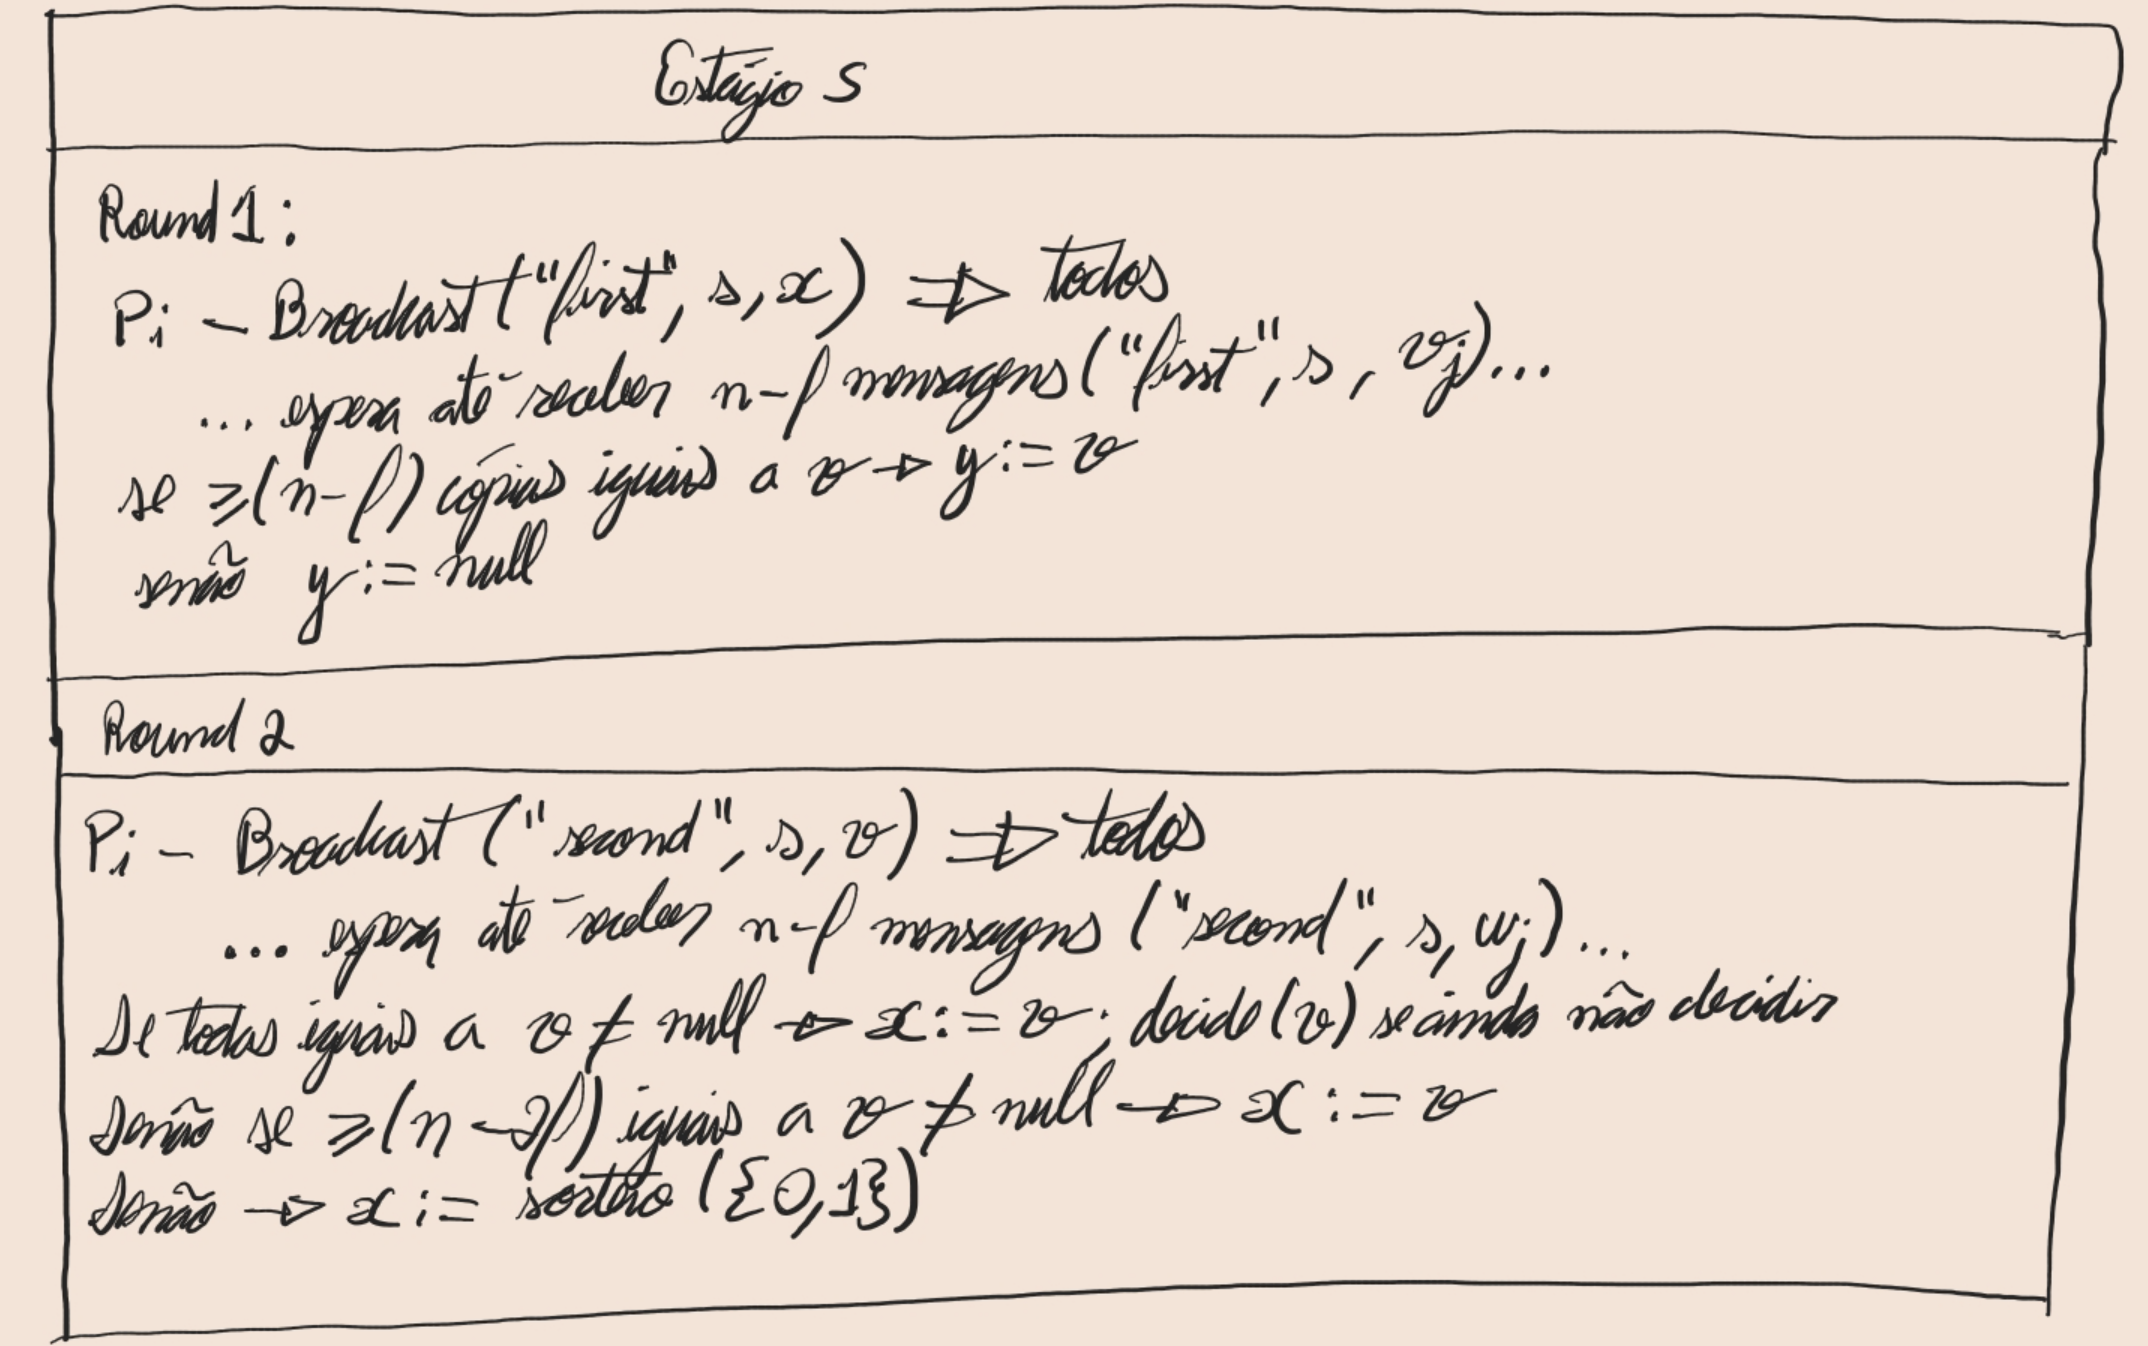 Estágio S
Round 1:
Pi - Broadcast ("first", s, x) ⇒ todos
... espera até receber n-f mensagens ("first", s, vj)...
se ≥(n-f) cópias iguais a v → y:= v
senão y:= null
Round 2
Pi - Broadcast ("second", s, v) ⇒ todos
... espera até receber n-f mensagens ("second", s, wj)...
Se todas iguais a v ≠ null → x:= v; decide(v) se ainda não decidir
Senão se ≥(n-2f) iguais a v ≠ null → x:= v
Senão → x:= sorteio ({0,1})